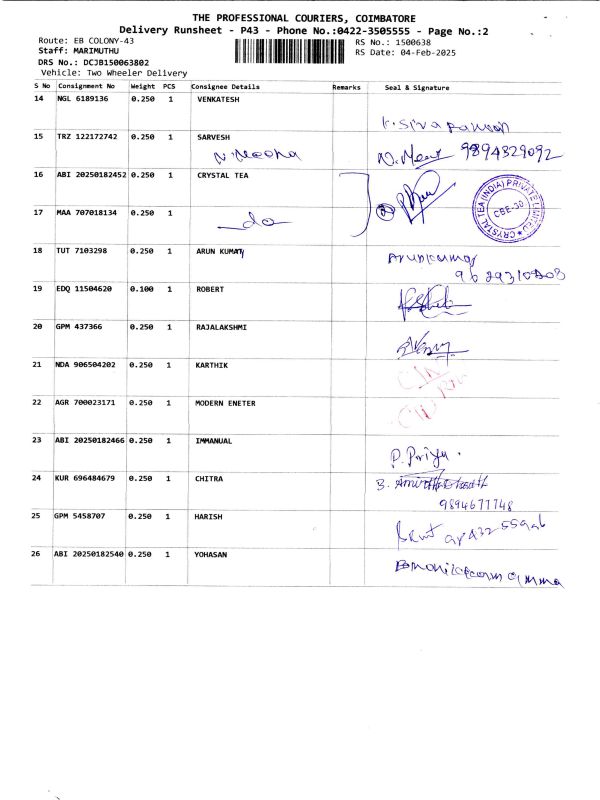 THE PROFESSIONAL COURIERS, COIMBATORE
Delivery Runsheet - P43 - Phone No.:0422-3505555 - Page No.:2
Route: EB COLONY-43
RS No.: 1500638
Staff: MARIMUTHU
RS Date: 04-Feb-2025
DRS No.: DCJB150063802
Vehicle: Two Wheeler Delivery
S No Consignment No Weight PCS Consignee Details Remarks Seal & Signature
14 NGL 6189136 0.250 1 VENKATESH
15 TRZ 122172742 0.250 1 SARVESH
N. Meena 9894329092
16 ABI 20250182452 0.250 1 CRYSTAL TEA
CRYSTAL TEA (INDIA) PRIVATE LIMITED
CBE-30
17 MAA 707018134 0.250 1
do
18 TUT 7103298 0.250 1 ARUN KUMAR
Arunkumar
19 EDQ 11504620 0.100 1 ROBERT
20 GPM 437366 0.250 1 RAJALAKSHMI
21 NDA 906504202 0.250 1 KARTHIK
22 AGR 700023171 0.250 1 MODERN ENETER
23 ABI 20250182466 0.250 1 IMMANUAL
P. Priya.
24 KUR 696484679 0.250 1 CHITRA
9894677748
25 GPM 5458707 0.250 1 HARISH
26 ABI 20250182540 0.250 1 YOHASAN